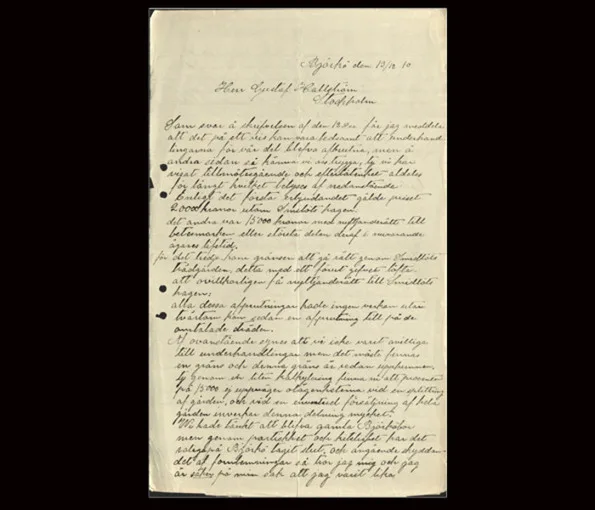 Björkö den 13/12 10
Herr Gustaf Hallström
Stockholm
Som svar å skrifvelsen af den får jag meddela
att det på ett vis kan vara ledsamt att underhand
lingarna för vår del blefvo afbrutna, men å
andra sidan så känna vi oss trygga, ty vi har
visat tillmötesgående och efterlåtenhet aldeles
för långt hvilket belyses af nedanstående
Enligt det första erbjudandet gälde priset
20000 kronor utom Smidlöts hagen.
det andra var 15000 kronor med nyttjanderätt till
betesmarken eller största delen deraf i nuvarande
ägares lifstid.
för det tredje kom gränsen att gå rätt genom Smidlöts
trädgården, detta med ett förut gifvet löfte
att ovillkorligen få nyttjanderätt till Smidlöts
hagen;
alla dessa afprutningar hade ingen verkan utan
tvärtom kom sedan en afprutning till på de
omtalade
Af ovanstående synes att vi icke varit ovilliga
till underhandlingar men det måste finnas
en gräns och denna gräns är redan upphunnen.
ty genom en liten kalkylering finna vi att procenten
på 15000 ej uppväger olägenheterna vid en splittring
af gården, och vid en eventuel försäljning af hela
gården inverkar denna delning mycket.
Vi hade tänkt att blifva gamla Björköbor
men genom partiskhet och har det
på Björkö tagit slut, och angående skydden-
det af fornlemningar så tror jag mig och jag
är säker på min sak att jag varit lika